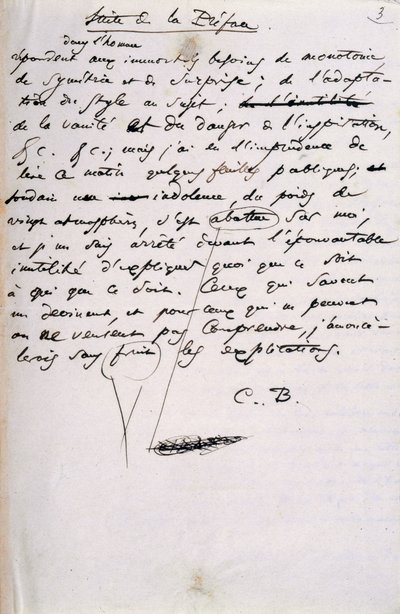 3
Suite de la Préface.
dans l'homme
répondent aux immortels besoins de monotonie,
de symétrie et de surprise; de l'adapta-
tion du style au sujet;
de la vanité et du danger de l'inspiration,
&c. &c.; mais j'ai eu l'imprudence de
lire ce matin quelques feuilles publiques;
soudain une indolence, du poids de
vingt atmosphères, s'est abattue sur moi,
et je me suis arrêté devant l'épouvantable
inutilité d'expliquer quoi que ce soit
à qui que ce soit. Ceux qui savent
me devinent, et pour ceux qui ne peuvent
ou ne veulent pas comprendre, j'amoncè-
lerais sans fruit les explications.
C. B.